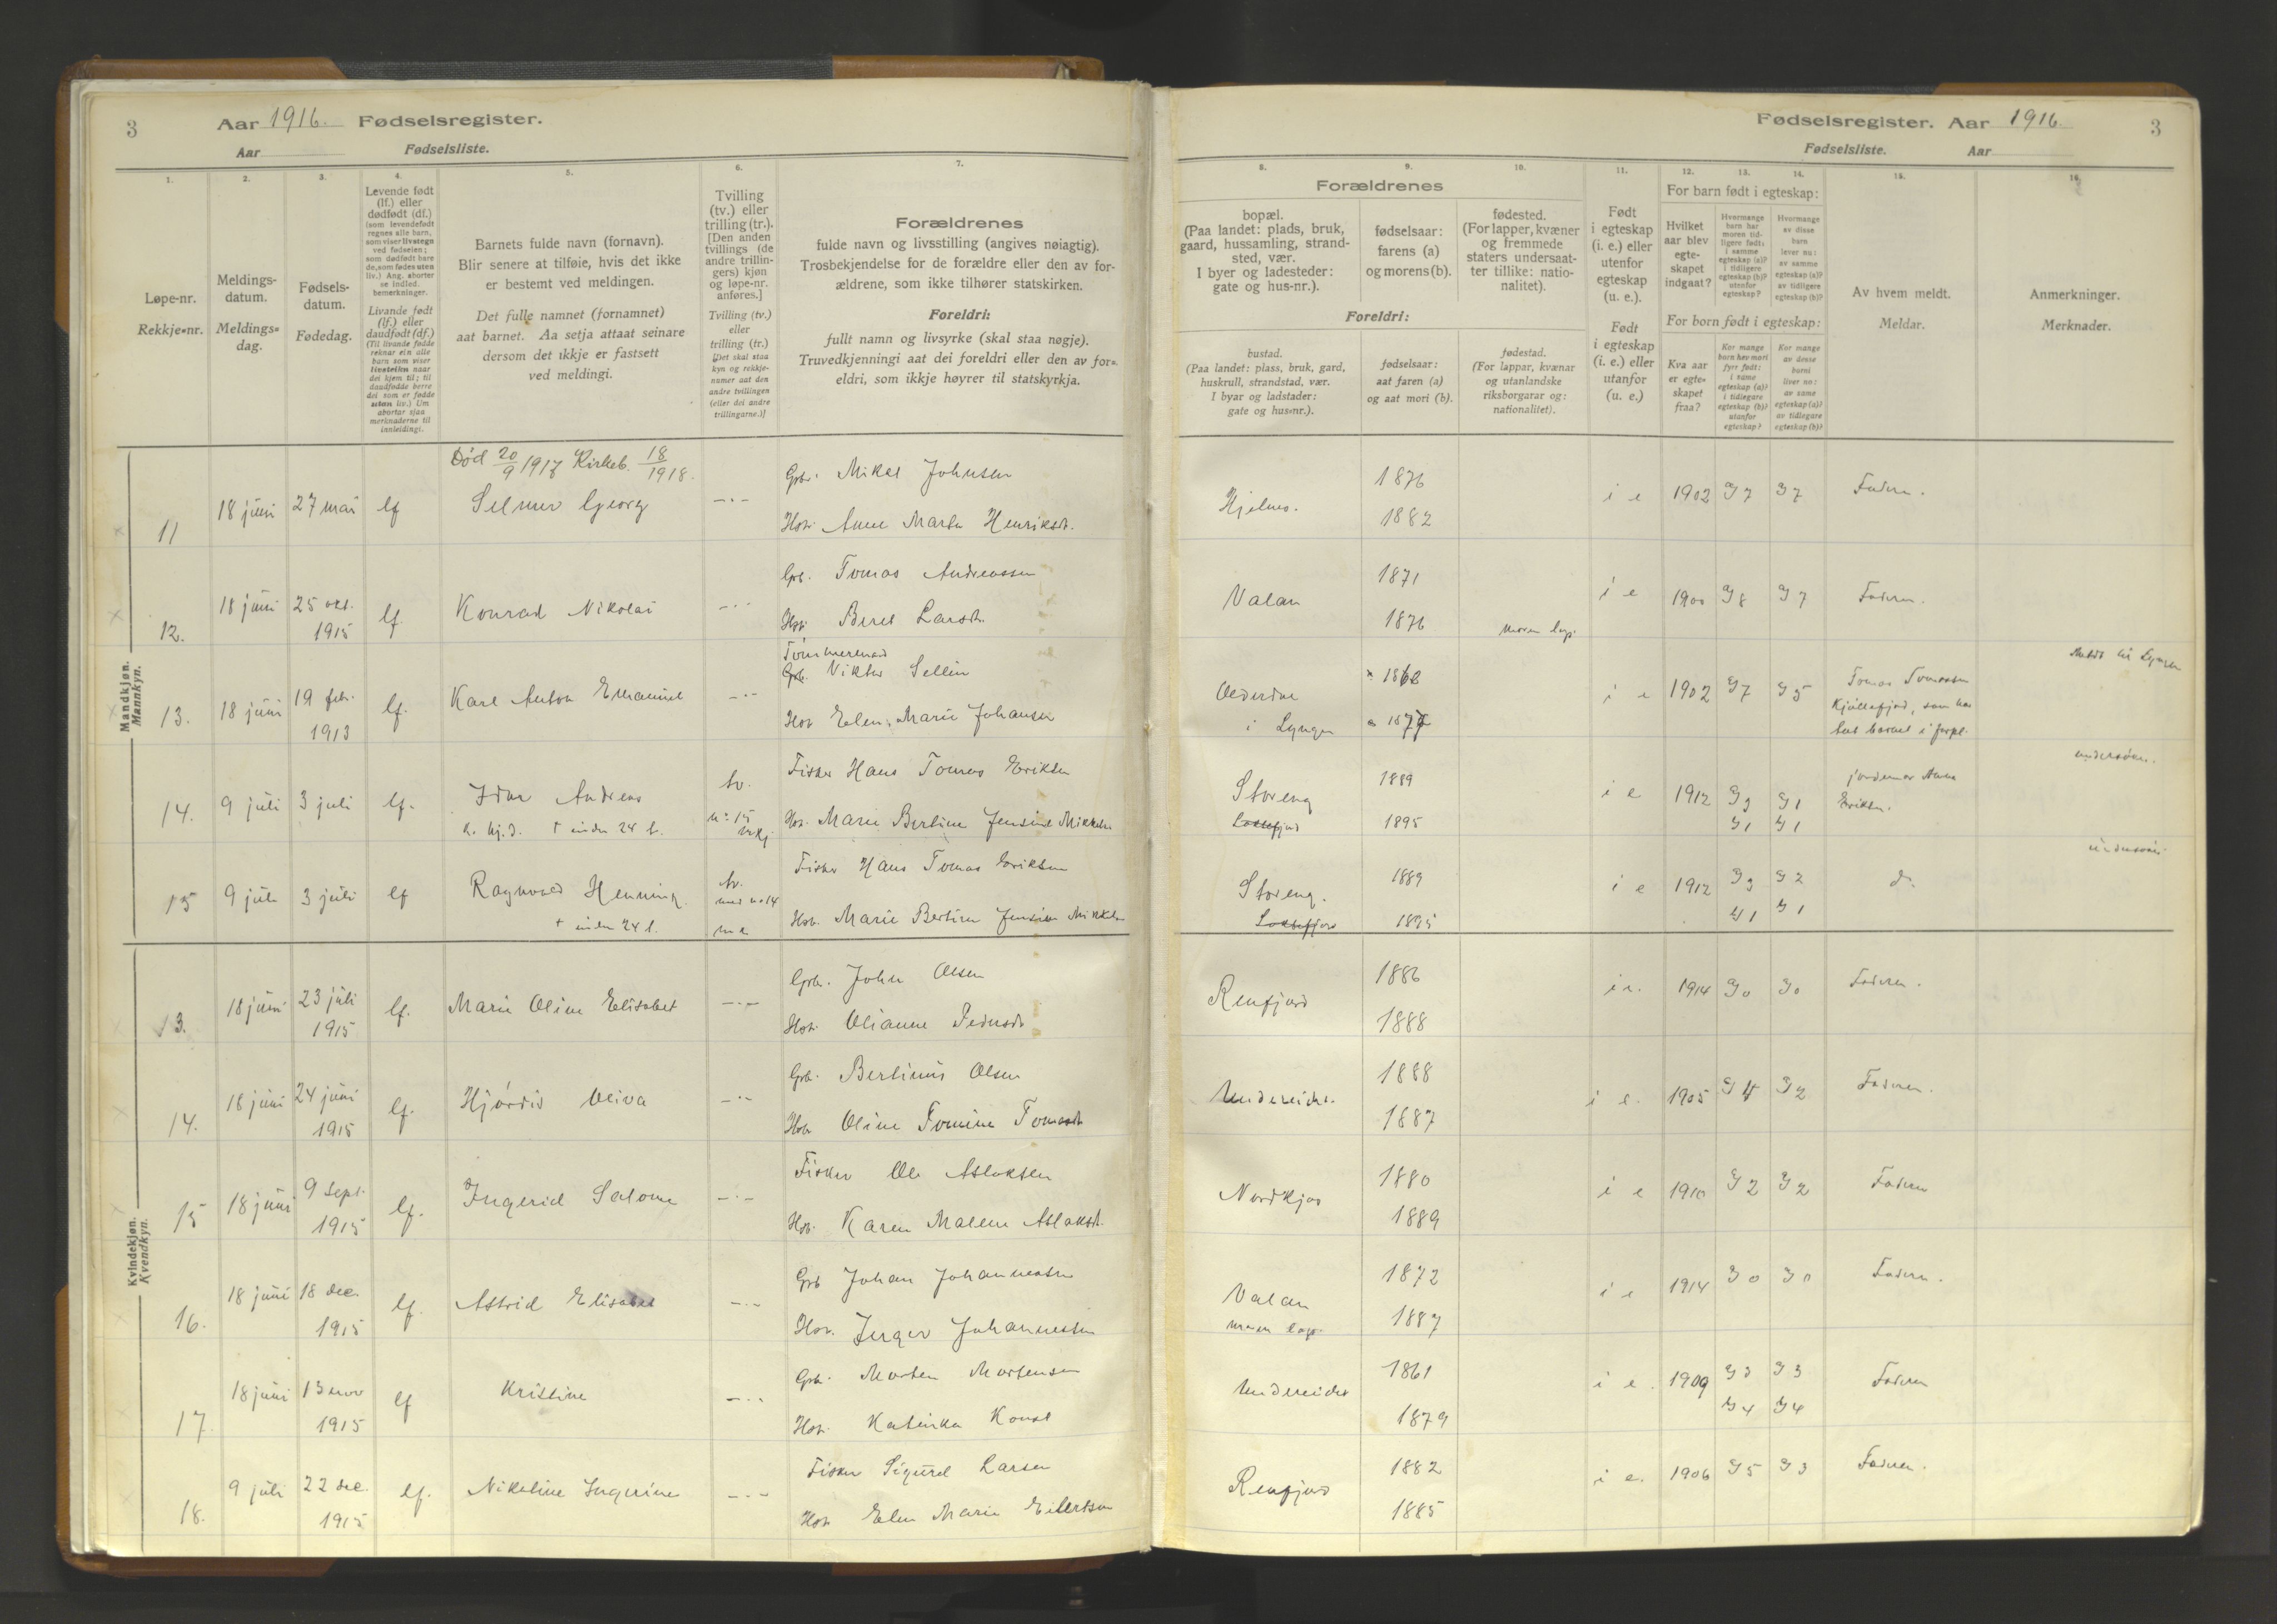 3 Aar 1916. Fødselsregister.
Aar Fødselsliste.
1. 2. 3. 4. 5. 6. 7.
Løpe-nr.
Rekkje-nr.
Meldings-
datum.
Meldings-
dag.
Fødsels-
datum.
Fødedag.
Levende født
(lf.) eller
dødfødt (df.)
(som levendefødt
regnes alle barn,
som viser livstegn
ved fødselen;
som dødfødt bare
de, som fødes uten
liv.) Ang. aborter
se indled.
bemerkninger.
Livande født
(lf.) eller
daudfødt (df.)
(Til livande fødde
reknar ein alle
barn som viser
livsteikn naar
dei kjem til; til
daudfødde berre
dei som er fødde
utan liv.) Um
abortar sjaa
merknaderne til
innleidingi.
Barnets fulde navn (fornavn).
Blir senere at tilføie, hvis det ikke
er bestemt ved meldingen.
Det fulle namnet (fornamnet)
aat barnet. Aa setja attaat seinare
dersom det ikkje er fastsett
ved meldingi.
Tvilling
(tv.) eller
trilling (tr.).
[Den anden
tvillings (de
andre trillin-
gers) kjøn
og løpe-nr.
anføres.]
Tvilling (tv.)
eller
trilling (tr.)
[Det skal staa
kyn og rekkje-
numer aat den
andre tvillingen
(eller dei andre
trillingarne.)]
Forældrenes
fulde navn og livsstilling (angives nøiagtig).
Trosbekjendelse for de forældre eller den av for-
ældrene, som ikke tilhører statskirken.
Foreldri:
fullt namn og livsyrke (skal staa nøgje).
Truvedkjenningi aat dei foreldri eller den av for-
eldri, som ikkje høyrer til statskyrkja.
Mandkjøn.
Mannkyn.
Død 20/9 1917 Kirkeb. 18/1918.
11 18 juni 27 mai lf Selmer Georg —·— Gbr. Mikal Johnsen
Hstr. Anne Marta Henriksdt.
12. 18 juni 25 okt. 1915 lf. Konrad Nikolai —·— Gbr. Tomas Andreassen
Hstr. Beret Larsdt.
13. 18 juni 19 feb. 1913 lf. Karl Anton Emanuel —·— Tømmermand
Gbr. Viktor Sellin
Hstr Elen Marie Johansen
14. 9 juli 3 juli lf. Idar Andreas tv. Fisker Hans Tomas Eriksen
† inden 24 t. nr 15 Hstr. Marie Bertine Jensine Mikkels
15 9 juli 3 juli lf Ragnvald Henning. tv. Fisker Hans Tomas Eriksen
† inden 24 t. med no 14 Hstr. Marie Bertine Jensine Mikkels
Kvindekjøn.
Kvendkyn.
13. 18 juni 23 juli 1915 lf. Marie Oline Elisabet —·— Gbr. John Olsen
Hstr. Olianne Pedersdt
14. 18 juni 24 juni 1915 lf. Hjørdis Oliva —·— Gbr. Bertinus Olsen
Hstr Oline Tomine Tomasdt
15 18 juni 9 sept. 1915 lf. Ingerid Salome —·— Fisker Ole Aslaksen
Hstr. Karen Malene Aslaksdt.
16. 18 juni 18 dec. 1915 lf. Astrid Elisabet —·— Gbr Johan Johannessen
Hstr. Inger Johannessen
17. 18 juni 13 nov 1915 lf Kristine —·— Gbr. Morten Mortensen
Hstr. Katinka
18. 9 juli 22 dec. 1915 lf. Nikoline Ingerine —·— Fisker Sigurd Larsen
Hstr Elen Marie Eilertsen
Fødselsregister. Aar 1916. 3
Fødselsliste. Aar
8. 9. 10. 11. 12. 13. 14. 15. 16.
Forældrenes
bopæl.
(Paa landet: plads, bruk,
gaard, hussamling, strand-
sted, vær.
I byer og ladesteder:
gate og hus-nr.).
fødselsaar:
farens (a)
og morens (b).
fødested.
(For lapper, kvæner
og fremmede
staters undersaat-
ter tillike: natio-
nalitet).
Foreldri:
bustad.
(Paa landet: plass, bruk, gard,
huskrull, strandstad, vær.
I byar og ladstader:
gate og hus-nr.).
fødselsaar:
aat faren (a)
og aat mori (b).
fødestad.
(For lappar, kvænar
og utanlandske
riksborgarar og:
nationalitet).
Født
i egteskap
(i. e.) eller
utenfor
egteskap
(u. e.).
Født
i egteskap
(i. e.) eller
utanfor
(u. e.)
For barn født i egteskap:
Hvilket
aar blev
egte-
skapet
indgaat?
Hvormange
barn har
moren tid-
ligere født:
i samme
egteskap (a)?
i tidligere
egteskap (b)?
utenfor
egteskap?
Hvormange
av disse
barn
lever nu:
av samme
egteskap (a)?
av tidligere
egteskap (b)?
For born født i egteskap:
Kva aar
er egte-
skapet
fraa?
Kor mange
born hev mori
fyrr født:
i same
egteskap (a)?
i tidlegare
egteskap (b)?
utanfor
egteskap?
Kor mange
av desse
borni
liver no:
av same
egteskap (a)?
av tidlegare
egteskap (b)?
Av hvem meldt.
Meldar.
Anmerkninger.
Merknader.
1876 i e 1902 7 7 Faderen.
1882
Valan 1871 i e 1900 8 7 Faderen.
1876 moren lap.
i Lyngen 1877 i e 1902 7 5 Tomas Tomassen
Kjøllefjord, som har
Storeng 1889 i e 1912 3 1 jordemor Anna
1895 1 1 Eriksen.
Storeng. 1889 i e 1912 3 2 do.
1895 1 1
Renfjord 1886 i e. 1914 0 0 Faderen.
1888
1888 i e. 1905 4 2 Faderen.
1887
Nordkjos 1880 i e 1910 2 2 Faderen
1889
Valan 1872 i e 1914 0 0 Faderen.
moren lap. 1887
1861 i e. 1909 3 3 Faderen
1879 4 4
Renfjord 1882 i e. 1906 5 3 Faderen.
1885